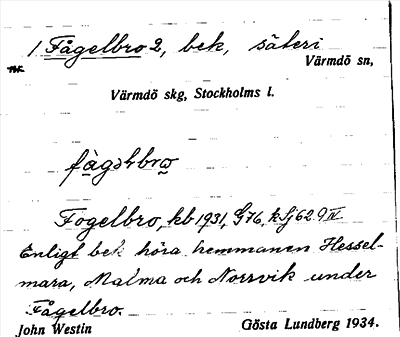 1 Fågelbro 2, bek, säteri
Värmdö sn,
Värmdö skg, Stockholms l.
Fogelbro, kb 1931, G76, kSj 62.9 IV
Enligt bek höra hemmanen Hessel-
mara, Malma och Norrvik under
Fågelbro.
John Westin Gösta Lundberg 1934.